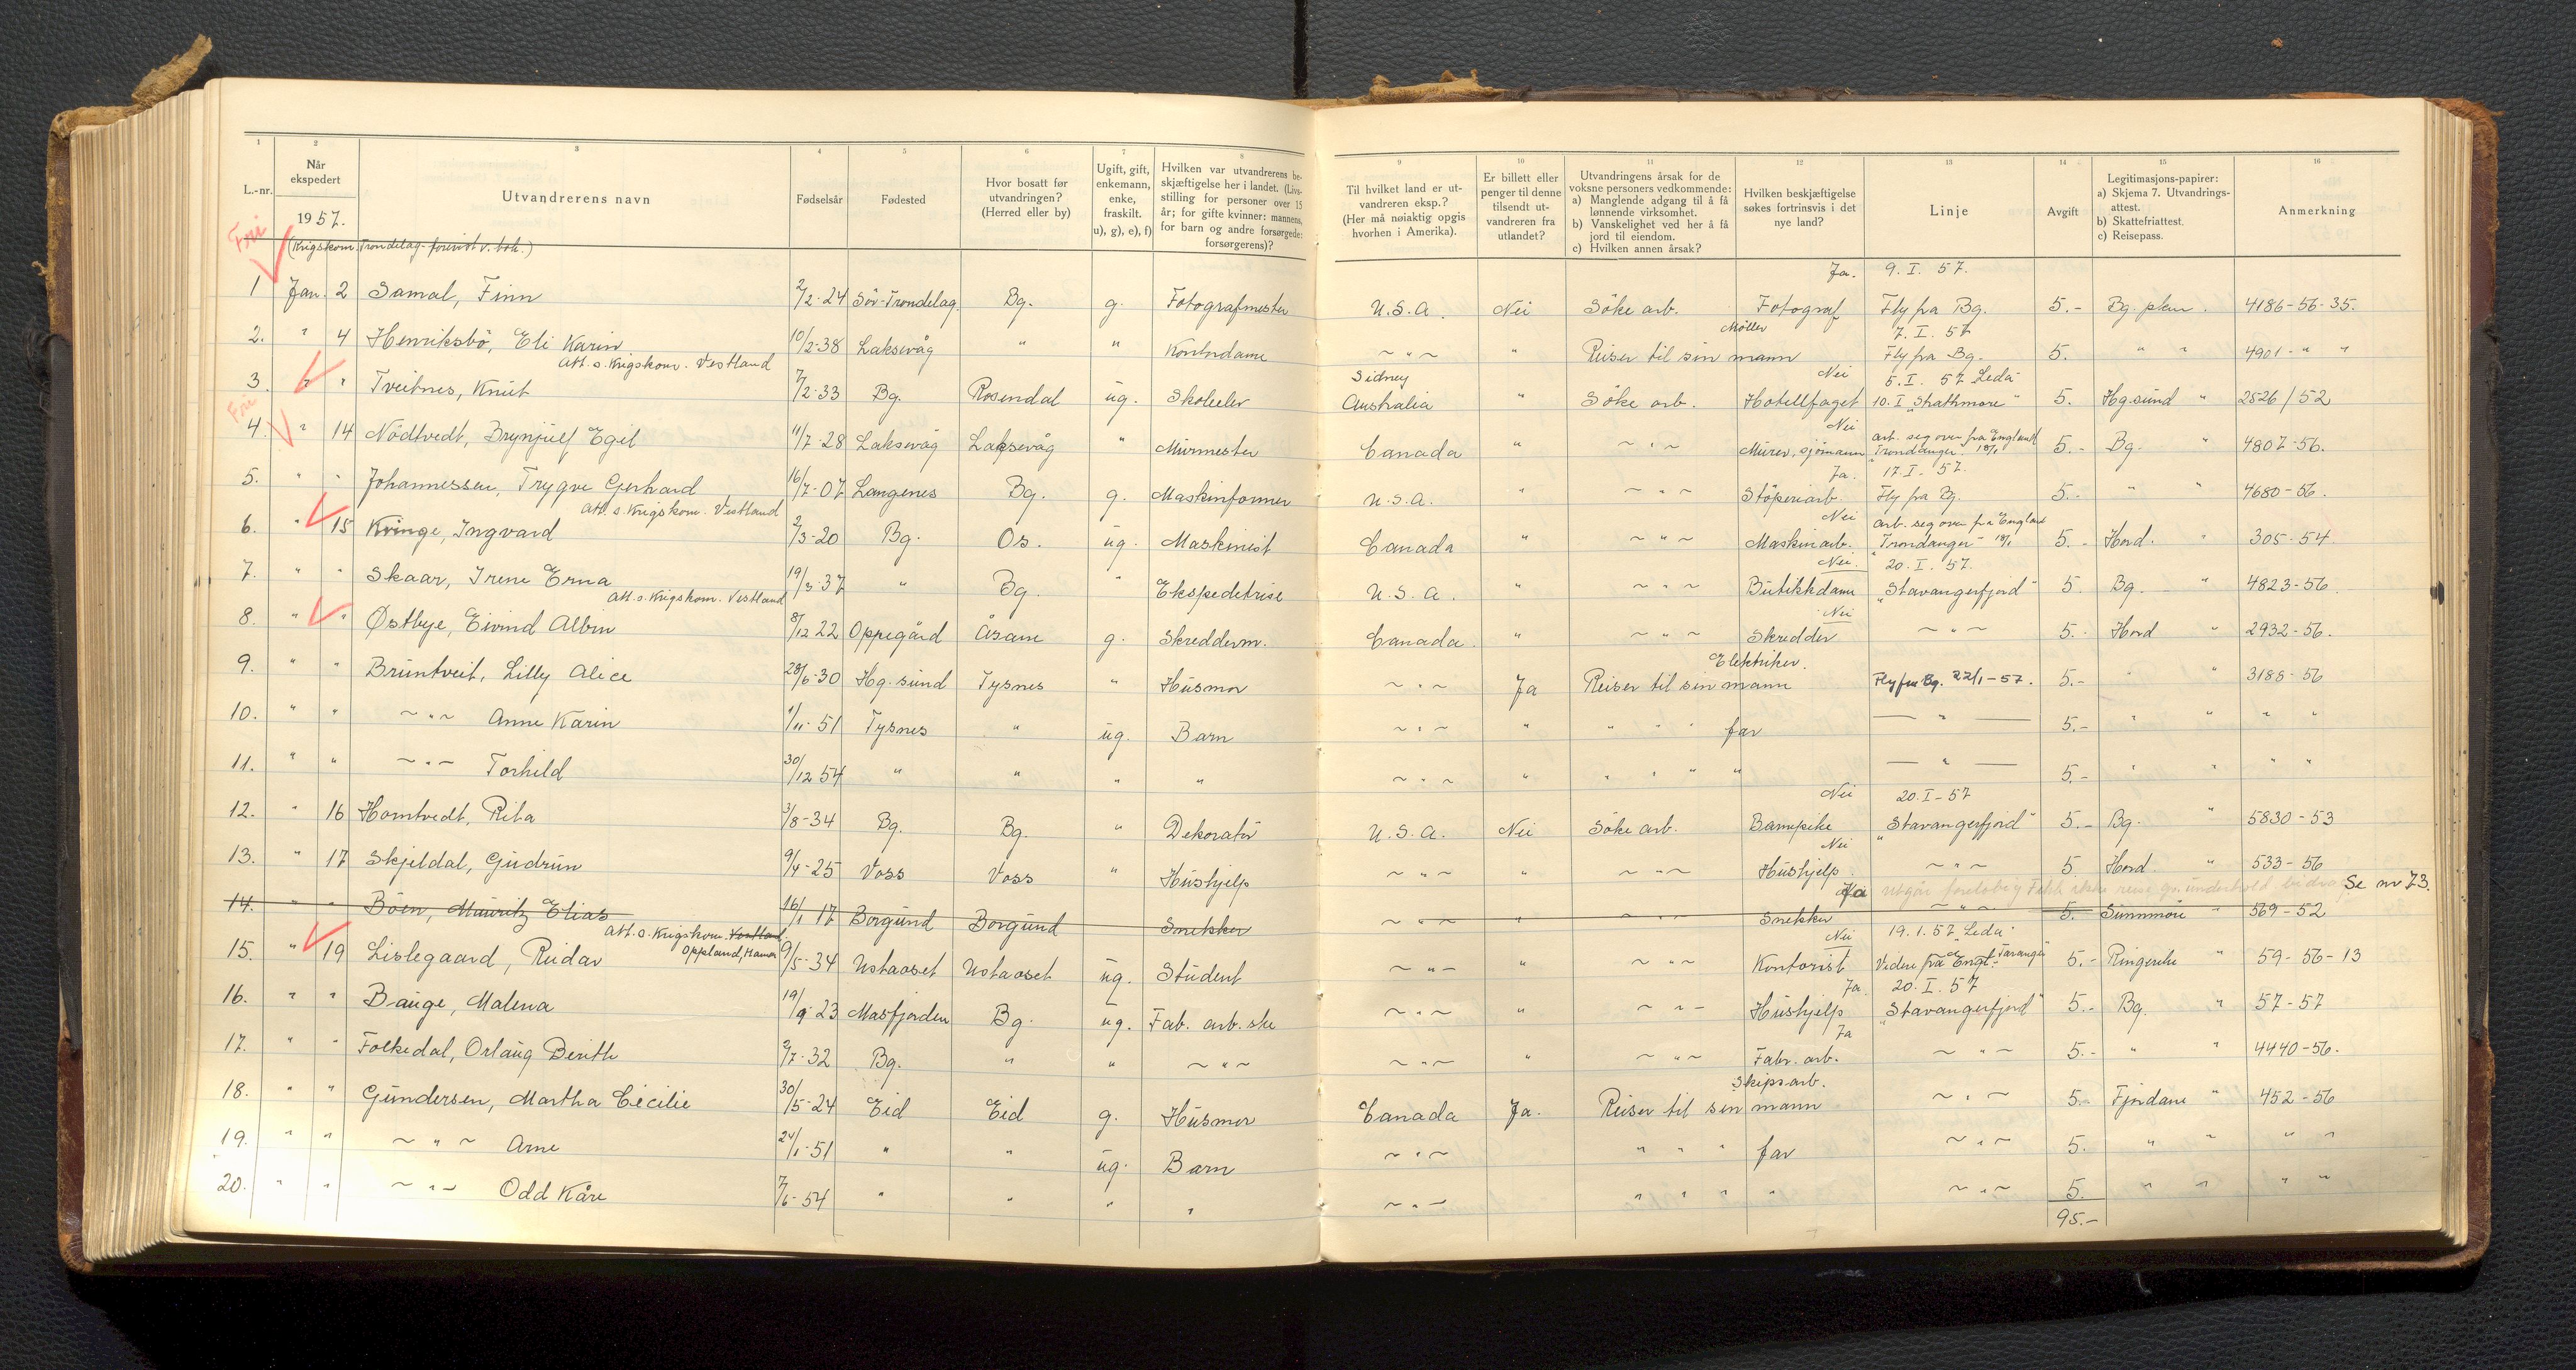 1 2 3 4 5 6 7 8 9 10 11 12 13 14 15 16
L.-nr. Når ekspedert 1957. Utvandrerens navn Fødselsår Fødested Hvor bosatt før utvandringen? (Herred eller by) Ugift, gift, enkemann, enke, fraskilt. u), g), e), f) Hvilken var utvandrerens beskjæftigelse her i landet. (Livsstilling for personer over 15 år; for gifte kvinner: mannens, for barn og andre forsørgede: forsørgerens)? Til hvilket land er utvandreren eksp.? (Her må nøiaktig opgis hvorhen i Amerika). Er billett eller penger til denne tilsendt utvandreren fra utlandet? Utvandringens årsak for de voksne personers vedkommende: a) Manglende adgang til å få lønnende virksomhet. b) Vanskelighet ved her å få jord til eiendom. c) Hvilken annen årsak? Hvilken beskjæftigelse søkes fortrinsvis i det nye land? Linje Avgift Legitimasjons-papirer: a) Skjema 7. Utvandringsattest. b) Skattefriattest. c) Reisepass. Anmerkning
Fri (Krigskom. Trøndelag - forevist v. bok.)
Ja. 9. I. 57.
1 Jan. 2 Samal, Finn 2/2-24 Sör-Trøndelag. Bg. g. Fotografmester U.S.A. Nei Söke arb. Fotograf Fly fra Bg. 5.- Bg. pkm. 4186-56-35.
Møller 7. I. 57
2. " 4 Henriksbö, Eli Karin 10/2-38 Laksevåg " " Kontordame ~"~ " Reiser til sin mann Fly fra Bg. 5. " " 4901-" "
Att. s. Krigskom. Vestland Sidney Nei 5. I. 57 Leda
3. " " Tveitnes, Knut 7/2-33 Bg. Rosendal ug. Skoleelev Australia " Söke arb. Hotellfaget 10. I „Strathmore" 5. Hg.sund " 2526/52
Fri Nei arb. seg over fra England
4. " 14 Nödtvedt, Brynjulf Egil 11/7-28 Laksevåg Laksevåg " Murmester Canada " ~"~ Murer, sjömann „Trondanger" 18/1 5.- Bg. " 4807-56.
Ja. 17. I - 57.
5. " " Johannessen, Trygve Gerhard 16/7-07 Langenes Bg. g. Maskinformer U.S.A. " ~"~ Stöperiarb. Fly fra Bg. 5.- " " 4680-56.
Att. s. Krigskom. Vestland Nei arb. seg over fra England
6. " 15 Kringe, Ingvard 2/3-20 Bg. Os. ug. Maskinist Canada " ~"~ Maskinarb. „Trondanger" 18/1 5.- Hord. " 305-54
Nei. 20. I. 57.
7. " " Skaar, Irene Erna 19/3-37 " Bg. " Ekspeditrise U.S.A. " ~"~ Butikkdame „Stavangerfjord" 5. Bg. " 4823-56.
Att. s. Krigskom. Vestland Nei
8. " " Østbye, Eivind Albin 8/12 22 Oppegård Åsane g. Skredderm. Canada. " ~"~ Skredder ~"~ 5.- Hord " 2932-56.
Elektriker.
9. " " Bruntveit, Lilly Alice 28/6-30 Hg.sund Tysnes " Husmor ~"~ Ja Reiser til sin mann Fly fra Bg. 22/1-57. 5.- " " 3185-56
10. " " ~"~ Anne Karin 1/11-51 Tysnes " ug. Barn ~"~ " " " " far — " — 5.- " " " "
11. " " ~"~ Torhild 30/12 54 " " " " ~"~ " " " " " — " — 5.- " " " "
Nei 20. I - 57
12. " 16 Homtvedt, Rita 3/8-34 Bg. Bg. " Dekoratör U.S.A. Nei Söke arb. Barnepike „Stavangerfjord" 5.- Bg. " 5830-53
Nei
13. " 17 Skjeldal, Gudrun 9/4-25 Voss Voss " Hushjelp ~"~ " ~"~ Hushjelp ~"~ 5. Hord. " 533-56
Ja utgår foreløbig Se nr 73.
14. " " Böen, Mauritz Elias 16/1 17 Borgund Borgund Snekker ~"~ " ~"~ Snekker ~"~ 5.- Sunnmöre " 569-52
Att. s. Krigskom. Vestland. Oppland, Hamar Nei 19. 1. 57 „Leda"
15. " 19 Lislegaard, Reidar 9/5-34 Ustaoset Ustaoset ug. Student ~"~ " ~"~ Kontorist Videre fra Engl. "Taranger" 5.- Ringerike " 59-56-13
Ja. 20. I. 57
16. " " Bauge, Malena 19/9-23 Masfjorden Bg. ug. Fab. arb. ske ~"~ " ~"~ Hushjelp „Stavangerfjord" 5.- Bg. " 57-57
Ja
17. " " Folkedal, Orlaug Berith 2/7-32 Bg. " " ~"~ ~"~ " ~"~ Fabr. arb. ~"~ 5.- " " 4440-56.
Skipsarb.
18. " " Gundersen, Martha Cecilie 30/5-24 Eid Eid g. Husmor Canada Ja. Reiser til sin mann ~"~ 5.- Fjordane " 452-56
19. " " ~"~ Arne 24/1-51 " " ug. Barn ~"~ " " " far ~"~ 5. " " " "
20. " " ~"~ Odd Kåre 7/6-54 " " " " ~"~ " " " " ~"~ 5. " " " "
95.-